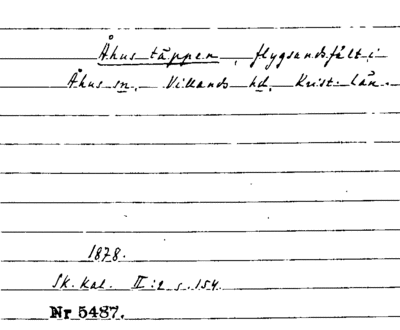 Åhus täppen, flygsandsfält i
Åhus sn. Villands hd, Krist. län.
1878.
Sk. kal. II:2 s. 154.
Nr 5487.